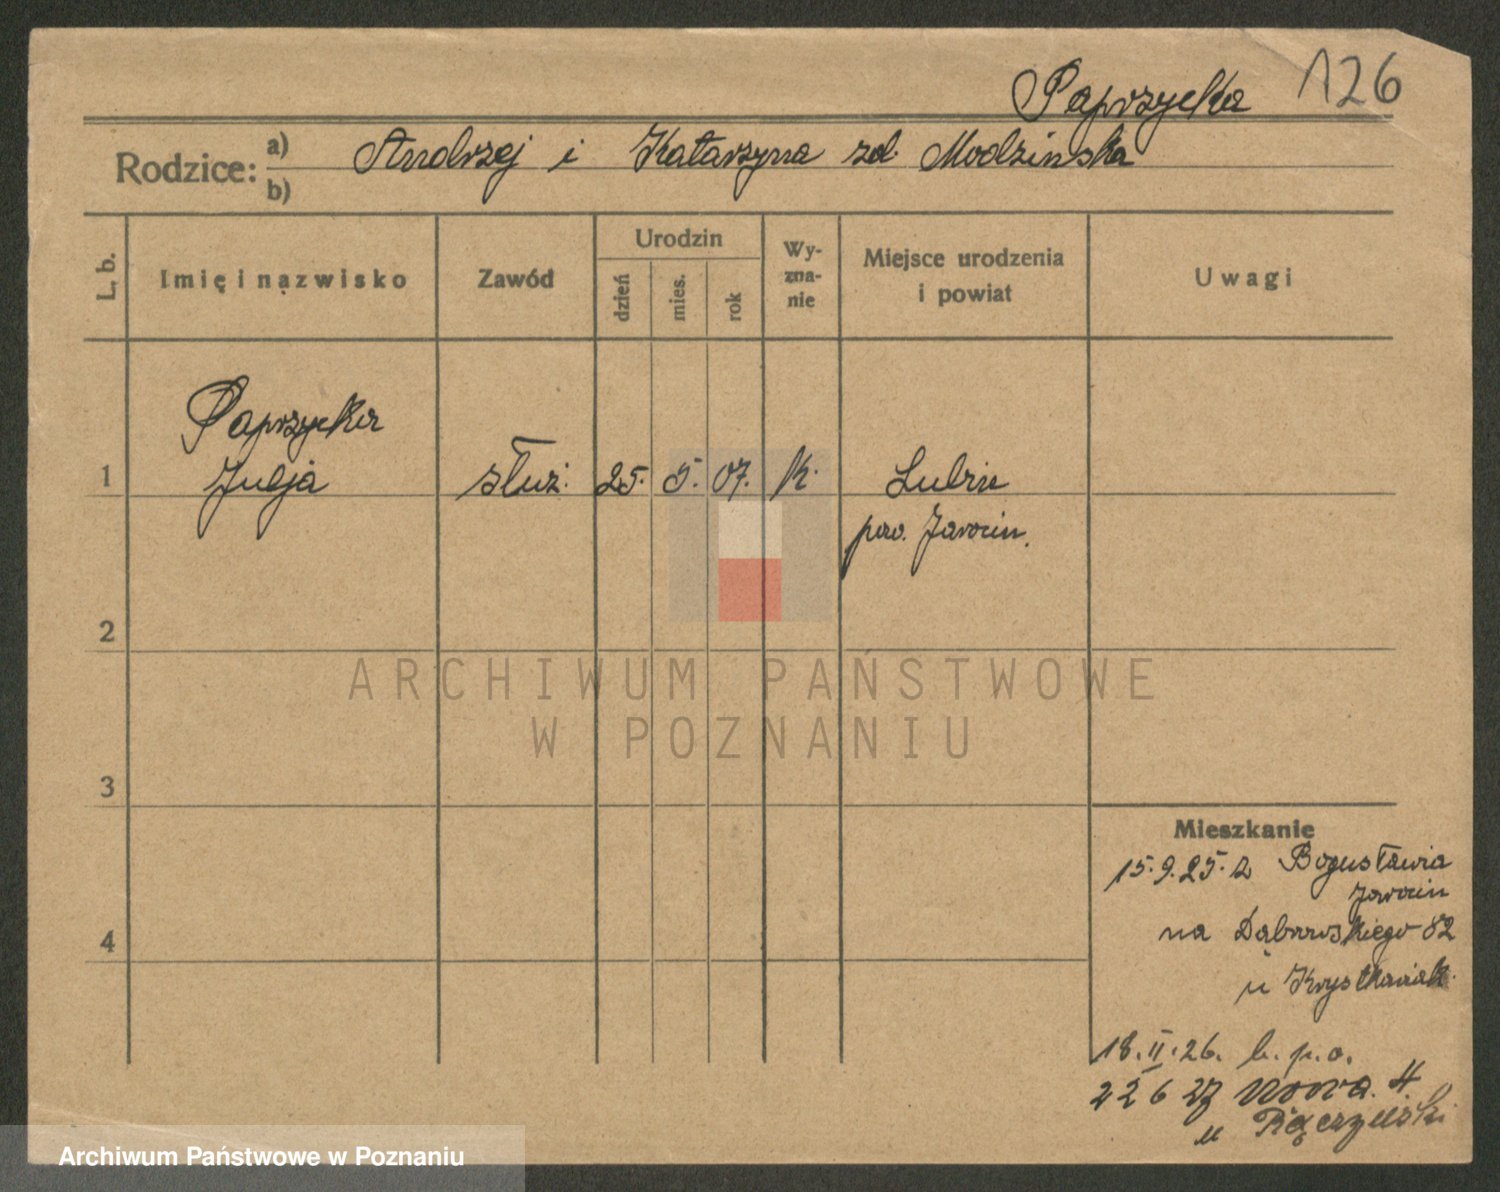 Paprzycka 126
Rodzice: a) Andrzej i Katarzyna zd. Modzinska
b)
L. b.
Imię i nazwisko
Zawód
Urodzin
dzień
mies.
rok
Wy-
zna-
nie
Miejsce urodzenia
i powiat
Uwagi
Paprzycka
1 Julja służ. 25. 5. 07. k.
pow. Jarocin.
2
ARCHIWUM PAŃSTWOWE
W POZNANIU
3
Mieszkanie
15.9.25. z Bogusławia
Jarocin
na Dąbrowskiego 82
4
u Krystkowiak.
18.II.26. b. p. o.
22 6 27 Nowa 4
u
Archiwum Państwowe w Poznaniu